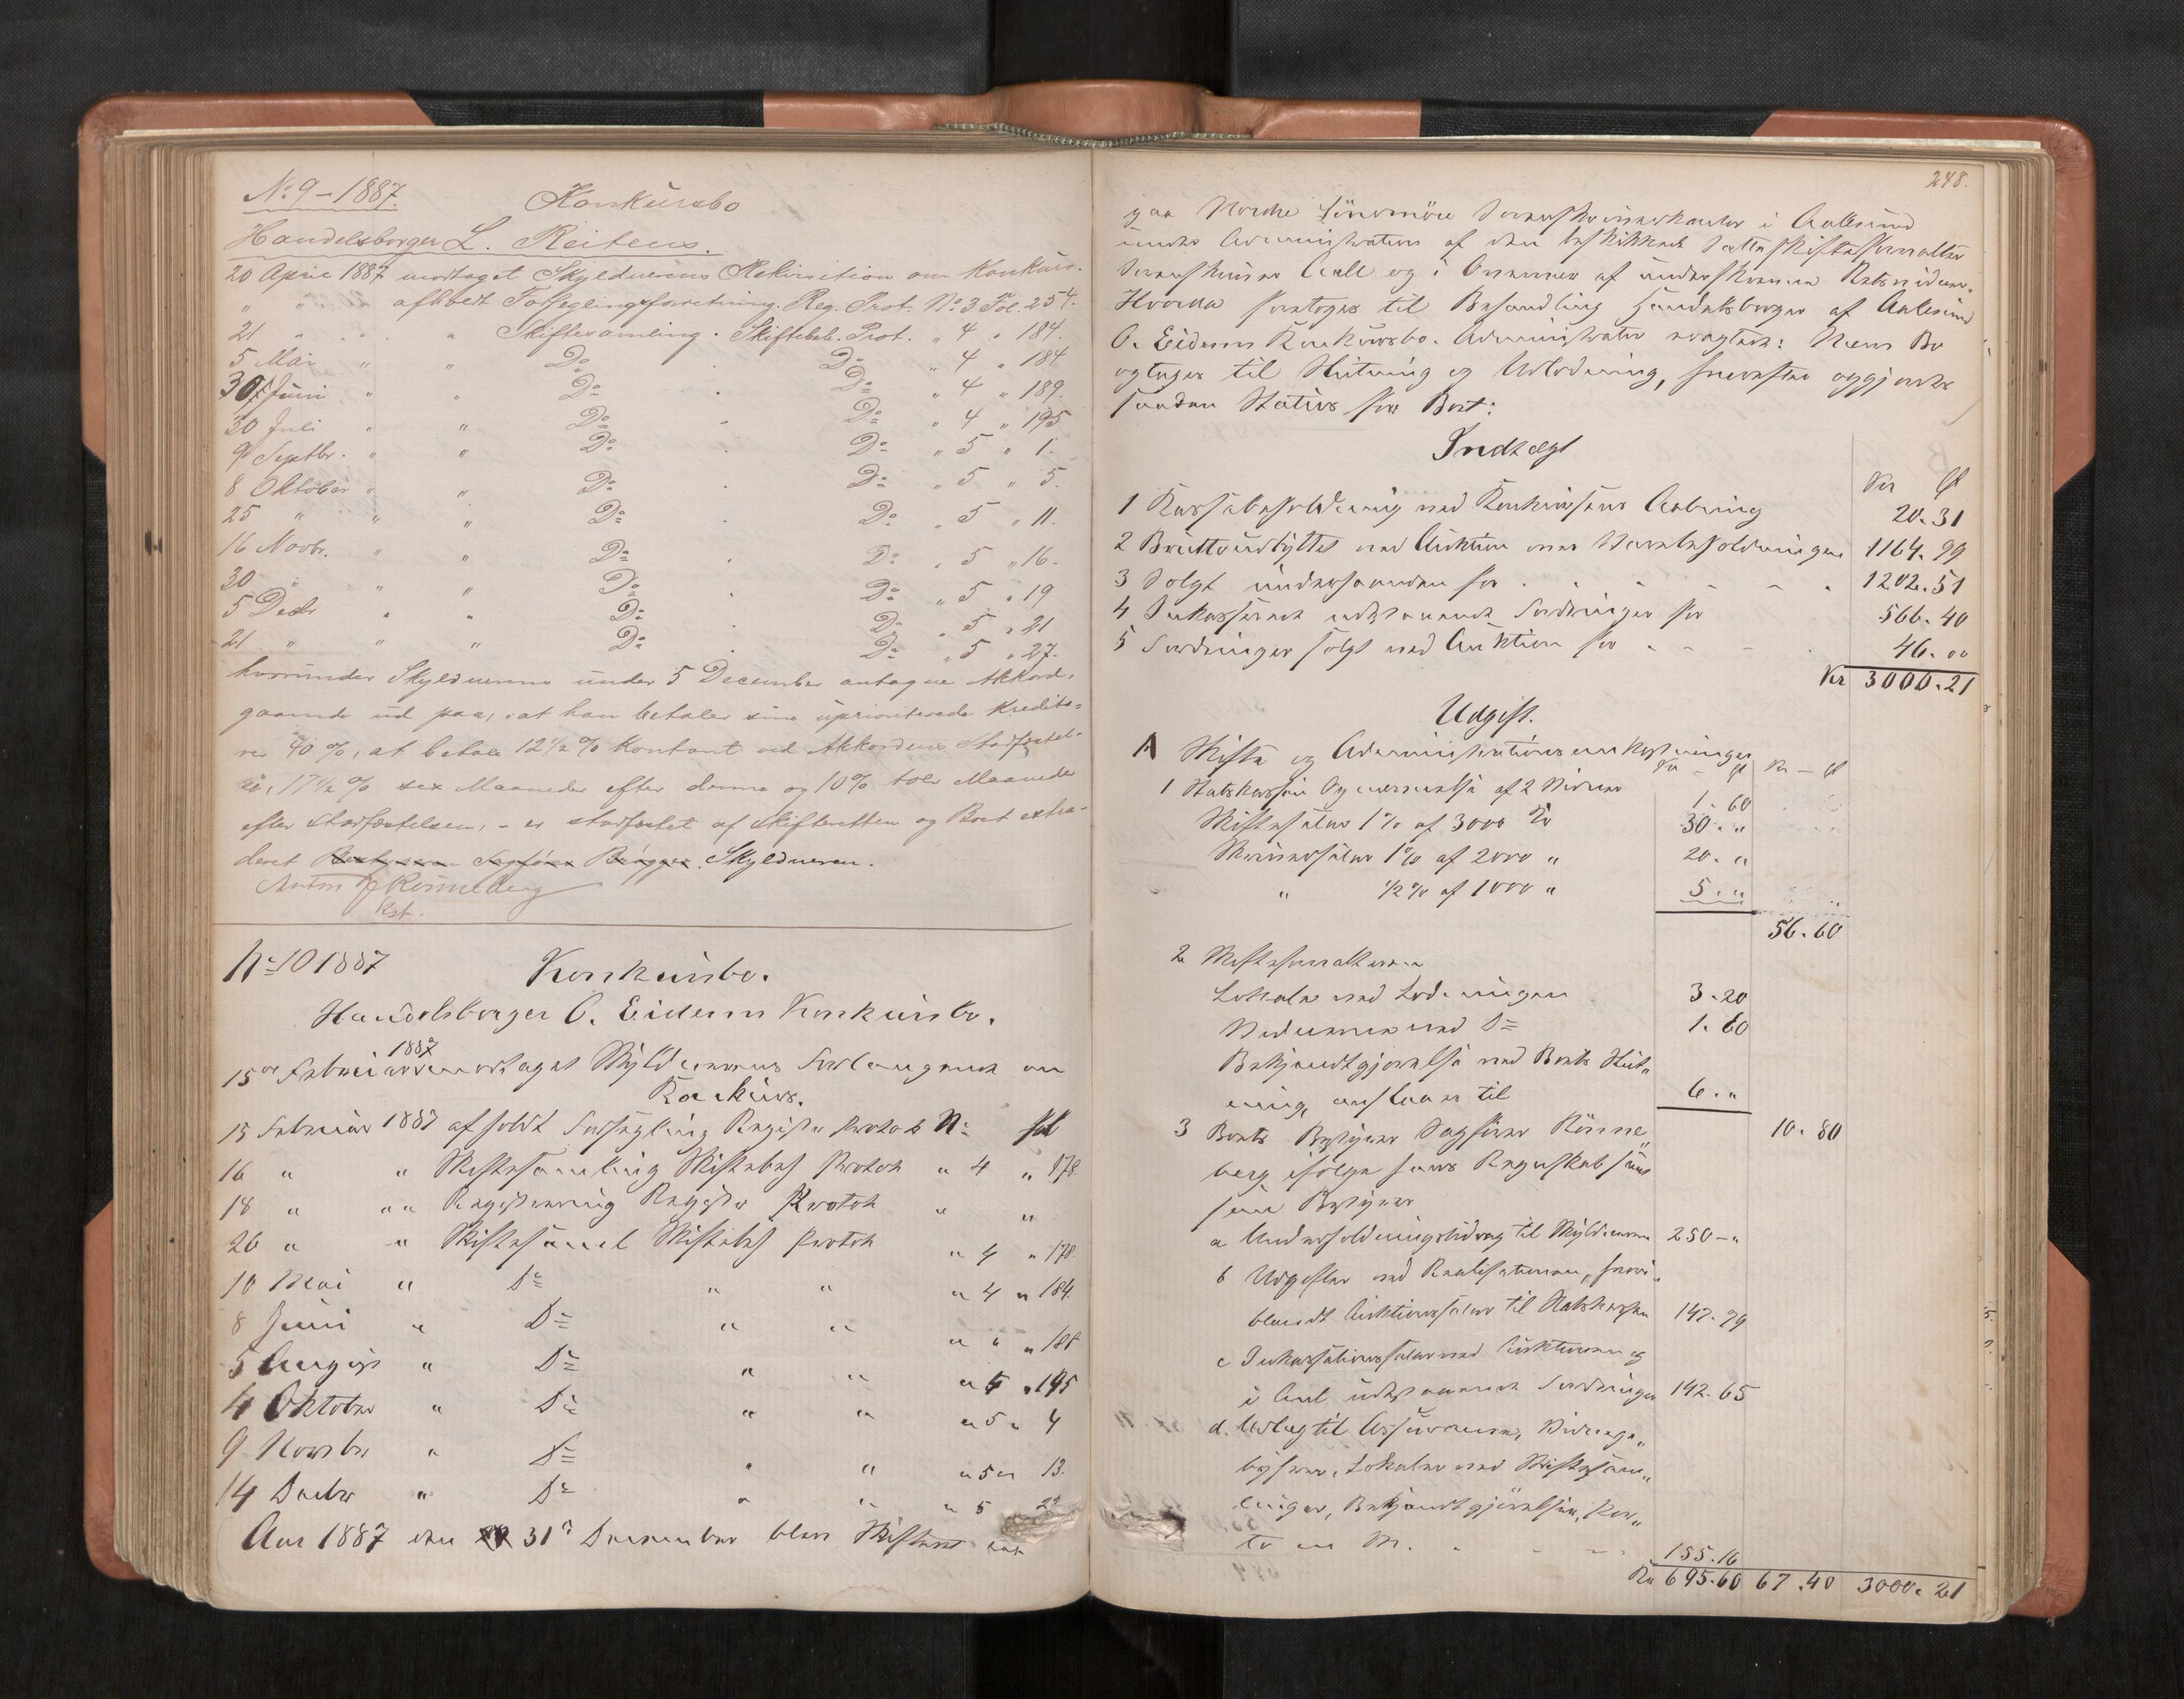 No 9 - 1887. Konkursbo
Handelsborger L. Reitens.
20 April 1887 modtaget Skyldnerens Rekvisition om Konkurs.
" " afholdt Forseglingsforretning. Reg. Prot. No 3 Fol. 254.
21 " " Skiftesamling. Skiftebeh. Prot. " 4 " 184.
5 Mai " " Do Do " 4 " 184
30 Juni " " Do Do " 4 " 189.
30 Juli " " Do Do " 4 " 195
9 Septbr. " " Do Do " 5 " 1.
8 Oktober " " Do Do " 5 " 5.
25 " " " Do Do " 5 " 11.
16 Novbr. " " Do Do " 5 " 16.
30 " " " Do Do " 5 " 19
5 Decbr " " Do Do " 5 " 21
21 " " " Do Do " 5 " 27.
hvorunder Skyldnerens under 5 December antagne Akkord,
gaaende ud paa, at han betaler sine uprioriterede Kredito-
rer 40 %, at betale 12 1/2 % kontant ved Akkordens Stadfæstel-
se, 17 1/2 % sex Maaneder efter denne og 10% tolv Maaneder
efter Stadfæstelsen, - er stadfæstet af Skifteretten og Boet extra-
deret Bestyreren Sagfører Skyldneren.
Anton Rønneberg
Kst.
No 10 1887 Konkursbo.
Handelsborger O. Eidems Konkursbo.
15de Februar 1887 modtaget Skyldnerens Forlangende om
Konkurs.
15 Februar 1887 afholdt Forsegling Registr Protok No fol
16 " " Skiftesamling Skiftebeh Protok " 4 " 178
18 " " " Registrering Registr Protok " "
26 " " Skiftesaml Skiftebeh Protok " 4 " 178.
10 Mai " Do " " " 4 " 184.
8 Juni " Do " " " " " 188
5 August " Do " " " 4 " 195
4 Oktober " Do " " " 5 " 4
9 Novbr " Do " " " 5 " 13.
14 Decbr " Do " " " 5
Aar 1887 den 31te December blev Skifteret sat
248.
paa Nordre Søndmøre Sorenskriverkontor i Aalesund
under Administration af den beskikkede Sætteskifteforvalter
Sorenskriver Aall og i Overvær af underskrevne Retsvidner.
Hvorda foretoges til Behandling Handelsborger af Aalesund
O. Eidems Konkursbo. Administrator vragtede: Næv. Bo
optages til Slutning og Udlodning, hvorefter opgjordes
saadan Status for Boet:
Indtægt
Kr Ø
1 Kassabeholdning ved Konkursens Aabning 20. 31
2 Bruttoudbyttet ved Auktion over Varebeholdningen 1164. 99
3 Solgt underhaanden for . . - - - . 1202. 51
4 Inkasserede udestaaende Fordringer for 566. 40
5 Fordringer solgt ved Auktion for . - - - . 46. 00
Kr 3000. 21
Udgift.
A Skifte og Administrationsomkostninger
Kr Ø Kr - Ø
1 Statskassen Opnævnelse af 2 Vidner 1. 60
Skiftesalær 1% af 3000 Kr 30. "
Skriversalær 1% af 2000 " 20. "
" 1/2 % af 1000 " 5. "
56. 60
2 Skifteforvalteren
Lokale ved Lodningen 3. 20
Vidnerne ved Do 1. 60
Bekjendtgjørelse ved Boets Slut-
ning, anslaaes til 6. "
10. 80
3 Boets Bestyrer Sagfører Rønne-
berg ifølge hans Regnskab
som Bestyrer
a Underholdningsbidrag til Skyldneren 250 - "
b Udgifter ved Realisationen, hvori-
blandt Auktionssalær til Statskassen 147. 79
c Inkassationssalær ved Auktionen og
i Anl udestaaende Fordringer 142. 65
d. Udlæg til Assurance, Vidnege-
byhrer, Lokaler ved Skiftesam-
linger, Bekjendtgjørelser, Por-
to m M. . - - - 155. 16
Kr 695. 60 67. 40 3000. 21